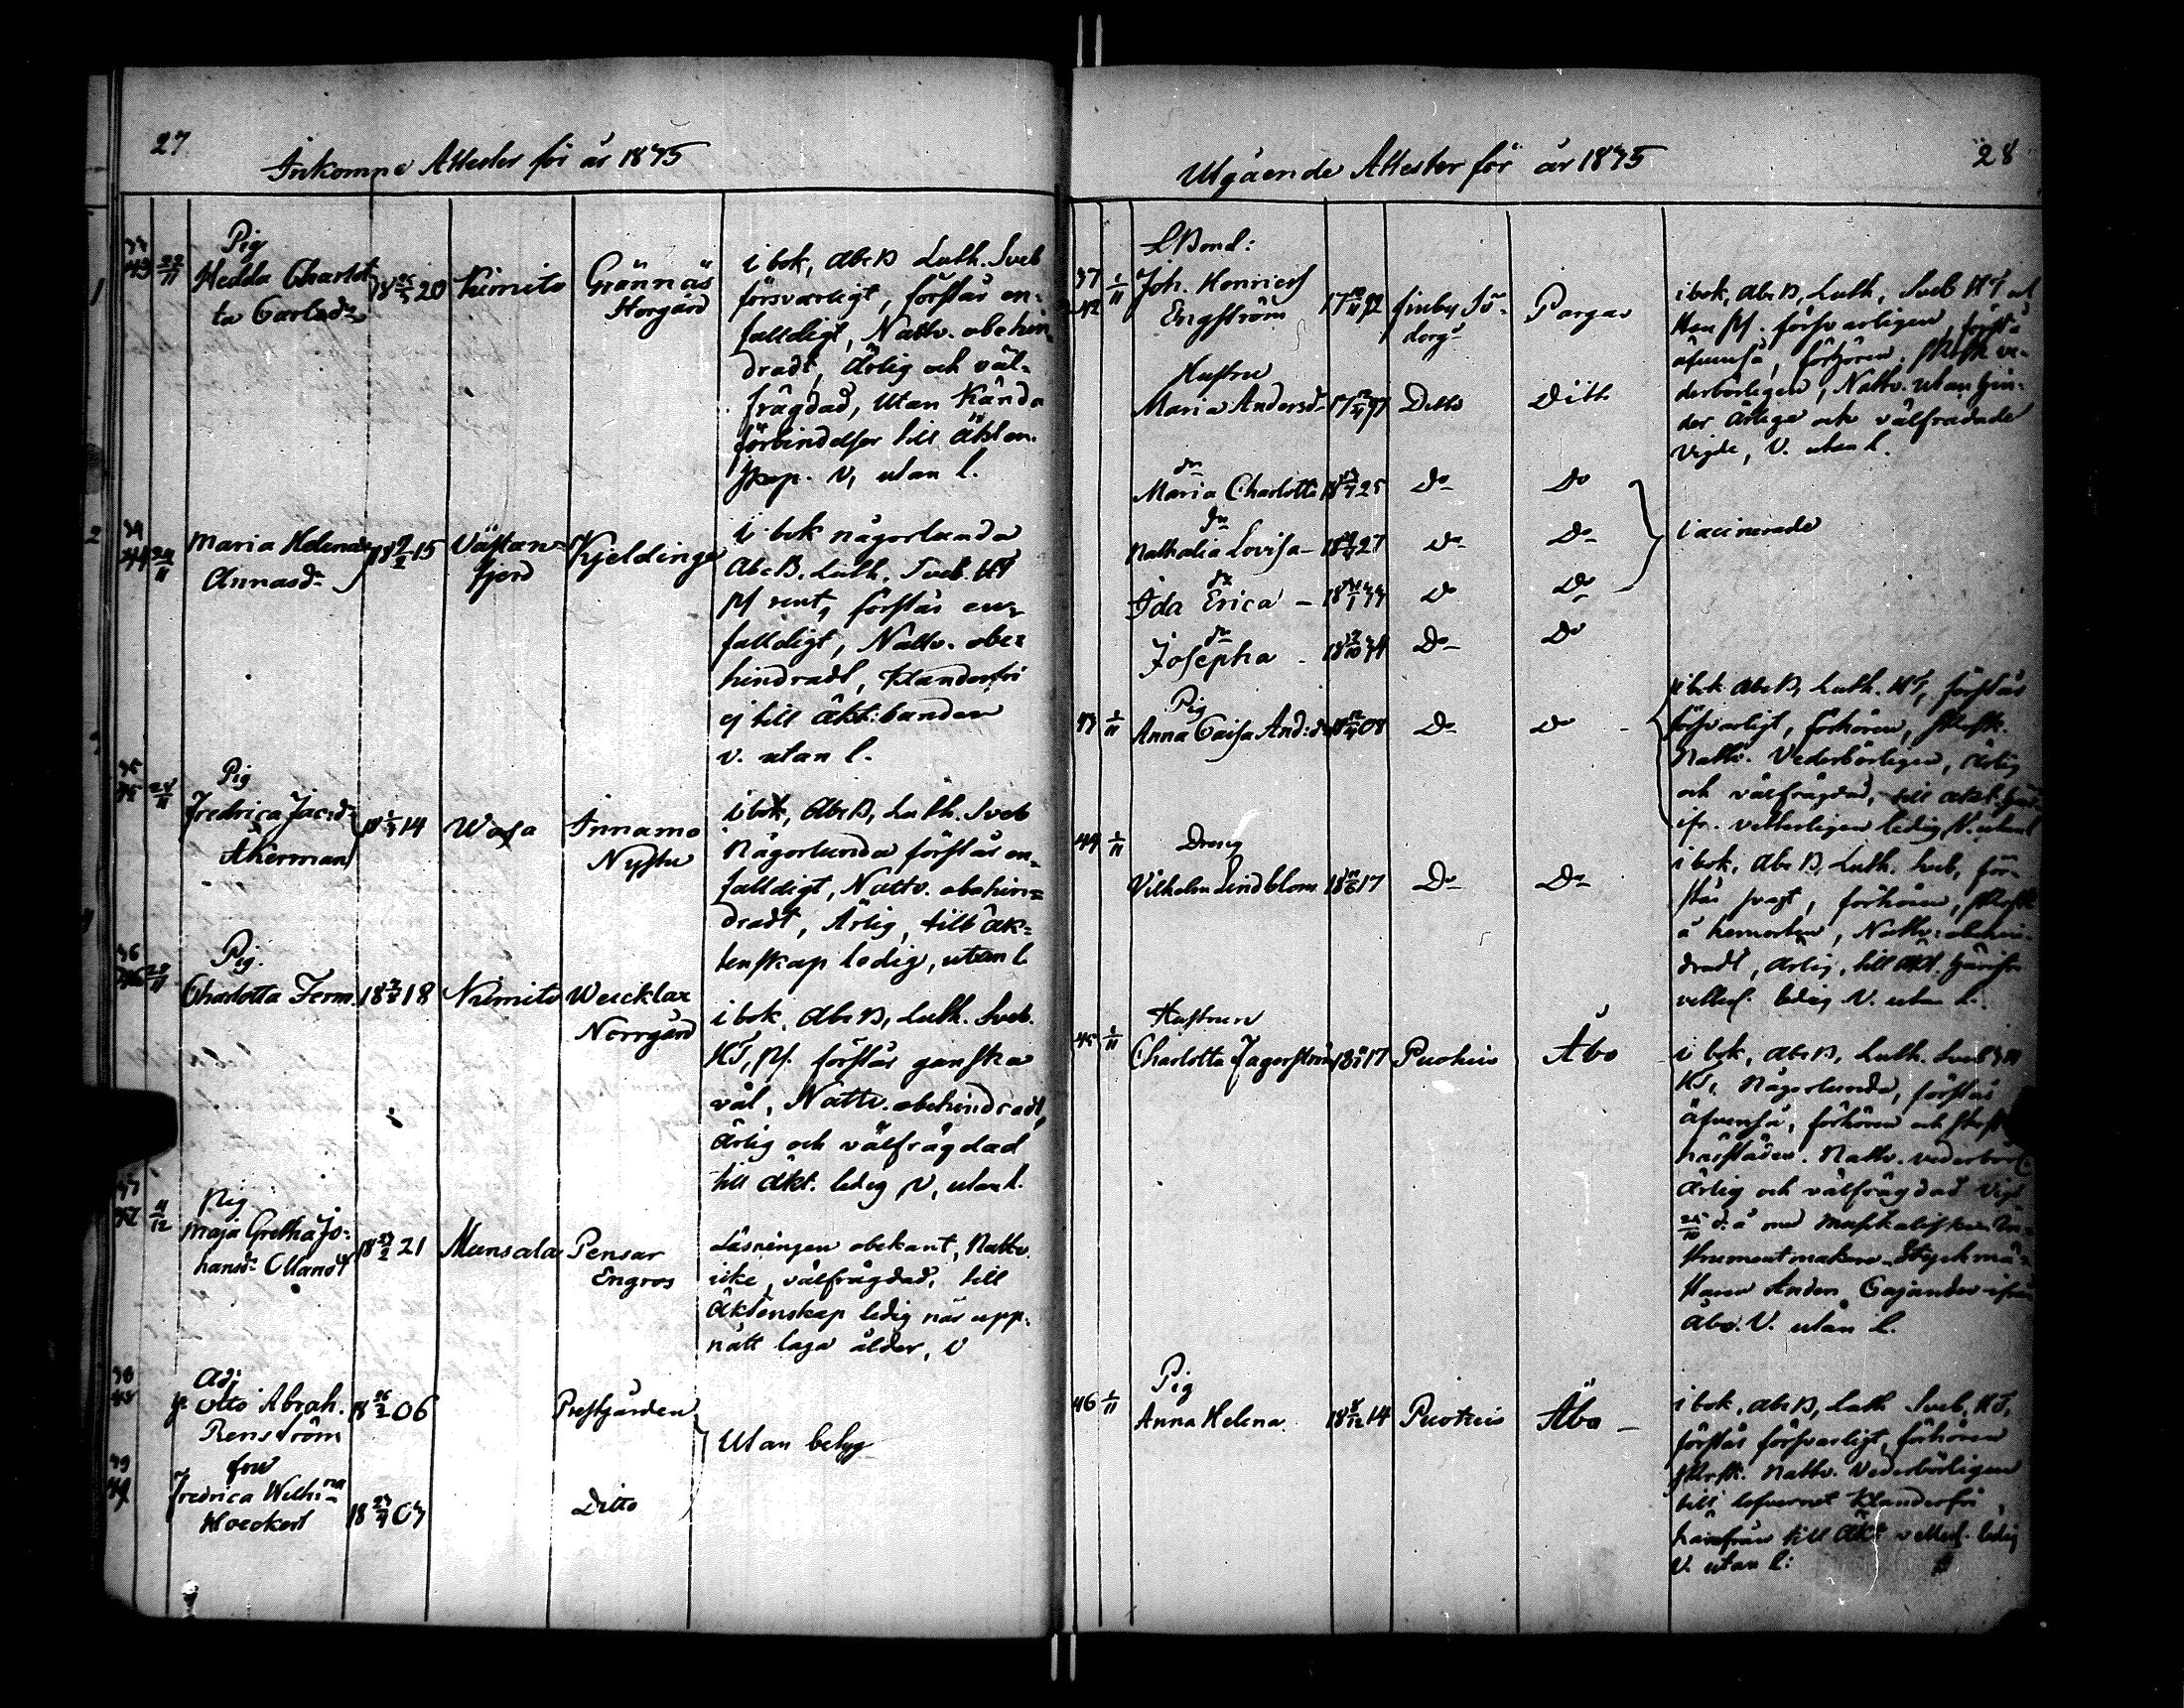 27
Inkomne Attester för år 1845
33
43 22/11
Pig
Hedda Charlot
ta Carlsdr
18 20 Kimito Grännäs
Norgård
i bok, Abc B Luth. Sveb
försvarligt, förstår en-
falldigt, Nattv. obehin
dradt, Ärlig och väl-
frägdad, Utan Kända
förbindelser till äkten-
skap. V, utan l.
34
44 24/11
Maria Helena
Annasdr
18 9/2 15 Västan-
fjerd
Kjeldinge
i bok någorlunda
Abc B. Luth. Sveb. HT
Ps rent, förstår en-
falldigt, Nattv. obe-
hindradt, Klanderfri
ej till äkt: bunden
v. utan l.
35
45 28/11
Pig
Fredrica Jac:dr
Åkerman
18 14 Wasa Innamo
Nystu
i bok, Abc B, Luth. Sveb
Någorlunda förstår en-
falldigt, Nattv. obehin-
dradt, Ärlig, till äk-
tenskap ledig, utan l
36
46 28/11
Pig.
Charlotta Ferm. 18 18 Kimito Wecklax
Norrgård
i bok, Abc B, Luth. Sveb.
HT, Ps. förstår ganska
väl, Nattv. obehindradt,
Ärlig och välfrägdad
till äkt. ledig V, utan l.
37
47 4/12
Pig
Maja Gretha Jo-
hansdr
18 27/2 21 Munsala Pensar
Engros
Läsningen obekant, Nattv.
icke, välfrägdad, till
Äktenskap ledig när upp-
nått laga ålder, V
38
48
Adj
p. Otto Abrah.
Renström
18 26/2 06 Prestgården
Utan betyg
39
49
fru
Fredrica Wilh:na
Hoeckert
18 Ditto
28
Utgående Attester för år 1845
37
42 1/11
LBond:
Joh. Henricss
Engström
17 92 finby Sö-
derg:
Pargas
i bok, Abc B, Luth, Sveb HT
Han Ps. försvarligen, förstå
äfvenså, förhören, skrift ve-
derbörligen, Nattv. utan hin-
der ärlige och välfrädade
vigde, V. utan l.
Hustru
Maria Andersdr 17 97 Ditto Ditto
dr
Maria Charlotta 18 25 Do Do
dr
Nathalia Lovisa - 18 27 Do Do
dr
Ida Erica - 18 Do Do
dr
Josepha - 18 Do Do
vaccinerade
43 1/11
Pig
Anna Caisa And:dr 18 08 Do Do
i bok Abc B, Luth. HT, förstår
försvarligt, förhören, skrift.
Nattv. Vederbörligen, Ärlig
och välfrägdad, till äkt. här-
ifr. vetterligen ledig V. utan l
44 1/11
Dreng
Vilhelm Lindblom 18 17 Do Do
i bok, Abc B, Luth. Sveb, för-
står svagt, förhören, skrift
å hemorten, Nattv. obehin-
dradt, ärlig, till äkt. härifr
vetterl. ledig V. utan l.
45 1/11
Hustrun
Charlotta Jagerström 18 17 Puotuis Åbo
i bok, Abc B, Luth. Sveb
HT, Någorlunda, förstår
äfvenså, förhören och skrift
härstädes. Nattv. vederbörl
Ärlig och välfrägdad Vigd
25/10 d: å med Musikaliske In-
strumentmakare
Anders Cajander ifrån
Åbo. V. utan l.
46 1/11
Pig
Anna Helena 18 14 Puotuis Åbo -
i bok, Abc B, Luth Sveb, HT,
förstår försvarligt, förhören
skrift. Nattv. Vederbörligen
till lefvernet Klanderfri
härifrån till äkt vetterl. ledig
V. utan l: